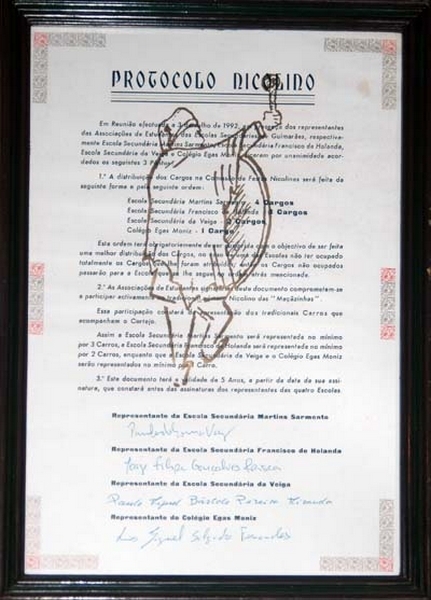 PROTOCOLO NICOLINO
Em Reunião efectuada a 3 de Julho de 1992, dos representantes
das Associações de Estudantes das Escolas Secundárias de Guimarães, respectiva-
mente Escola Secundária Martins Sarmento, Escola Secundária Francisco de Holanda,
Escola Secundária da Veiga e o Colégio Egas Moniz, por unanimidade acor-
dados os seguintes 3 Pontos:
1.º A distribuição dos Cargos na Comissão de Festas Nicolinas será feita da
seguinte forma e pela seguinte ordem:
Escola Secundária Martins Sarmento - 4 Cargos
Escola Secundária Francisco de Holanda - 3 Cargos
Escola Secundária da Veiga - 2 Cargos
Colégio Egas Moniz - 1 Cargo
Esta ordem terá com o objectivo de ser feita
uma melhor distribuição dos Cargos, no Escolas não ter ocupado
totalmente os Cargos que lhe foram os Cargos não ocupados
passarão para a Escola que lhe atrás mencionada.
2.º As Associações de Estudantes deste documento comprometem-se
a participar activamente Nicolino das "Maçãzinhas".
Esta participação constará tradicionais Carros que
acompanham o Cortejo.
Assim a Escola Secundária Martins Sarmento será representada no mínimo
por 3 Carros, a Escola Secundária Francisco de Holanda será representada no mínimo
por 2 Carros, enquanto que a Escola Secundária da Veiga e o Colégio Egas Moniz
serão representados no mínimo por 1 Carro.
3.º Este documento terá a validade de 5 Anos, a partir da data de sua assi-
natura, que constará antes das assinaturas dos representantes das quatro Escolas.
Representante da Escola Secundária Martins Sarmento
Representante da Escola Secundária Francisco de Holanda
Jorge Filipe Gonçalves
Representante da Escola Secundária da Veiga
Paulo Miguel Pereira Miranda
Representante do Colégio Egas Moniz
Miguel Salgado Fernandes